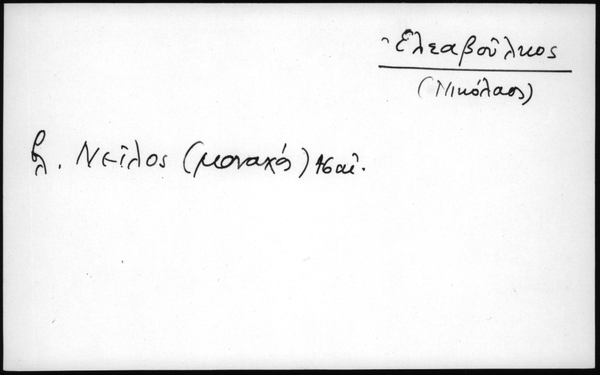 Ἐλεαβοῦλκος
(Νικόλαος)
βλ. Νεῖλος (μοναχός) 16 αἰ.